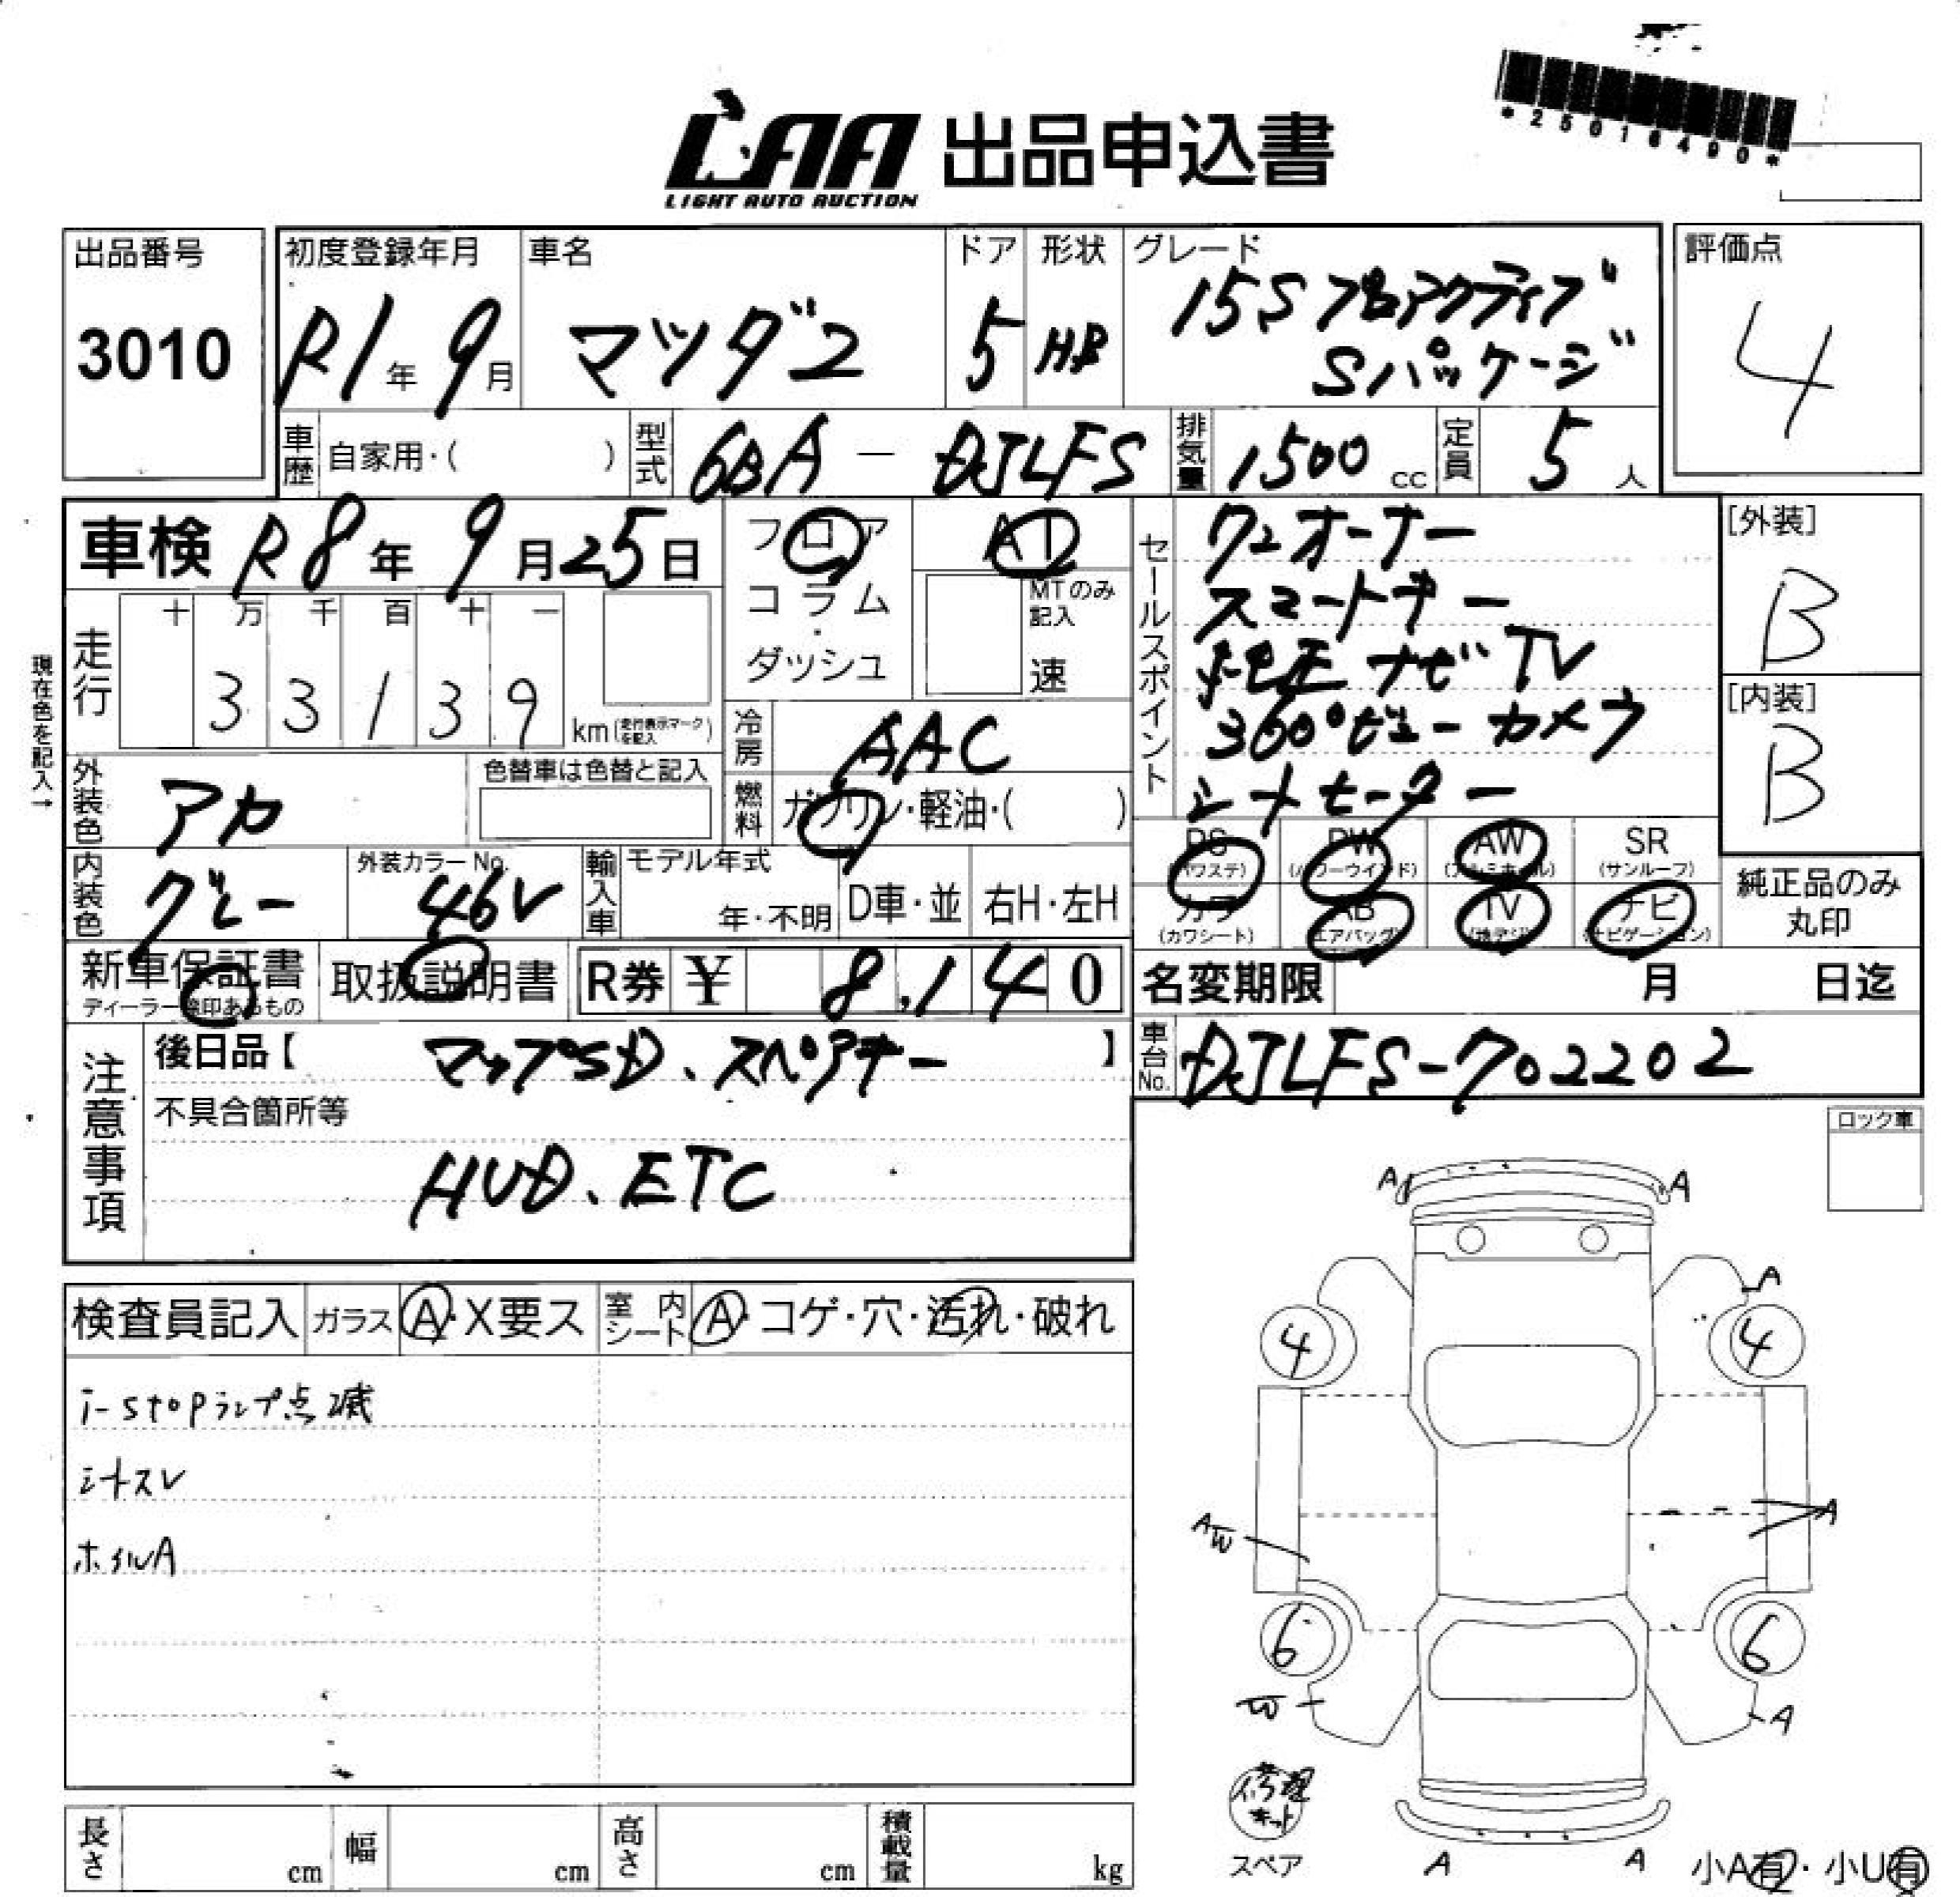 *25016490*
LAA 出品申込書
LIGHT AUTO AUCTION
出品番号
3010
初度登録年月
R1年 9月
車名
マツダ2
ドア
5
形状
HB
グレード
15S プロアクティブ
Sパッケージ
評価点
4
車歴 自家用・( )
型式 6BA - DJLFS
排気量 1500 cc
定員 5 人
車検 R8年 9月25日
フロア
コラム
・
ダッシュ
AT
MTのみ
記入
速
セールスポイント
ワンオーナー
スマートキー
純正ナビTV
360°ビューカメラ
シートヒーター
[外装]
B
[内装]
B
現在色を記入→
走行
十 万 千 百 十 一
3 3 1 3 9
km(走行表示マークを記入)
冷房 AAC
燃料 ガソリン・軽油・( )
外装色 アカ
色替車は色替と記入
内装色 グレー
外装カラーNo.
46V
輸入車
モデル年式
年・不明
D車・並
右H・左H
PS
(パワステ)
PW
(パワーウインド)
AW
(アルミホイル)
SR
(サンルーフ)
カワ
(カワシート)
AB
(エアバッグ)
TV
(地デジ)
ナビ
(ナビゲーション)
純正品のみ
丸印
新車保証書
ディーラー捺印あるもの
取扱説明書
R券 ¥ 8,140
名変期限 月 日迄
注意事項
後日品【 マップSD、スペアキー 】
不具合箇所等
HUD、ETC
車台No. DJLFS-702202
ロック車
検査員記入
ガラス A・X要ス
室内シート A・コゲ・穴・汚れ・破れ
i-stopランプ点滅
シートスレ
ホイルA
A A
A
4 4
AW A
6 6
W A
修理
キット
スペア
A A
小A有・小U有
2
長さ cm
幅 cm
高さ cm
積載量 kg